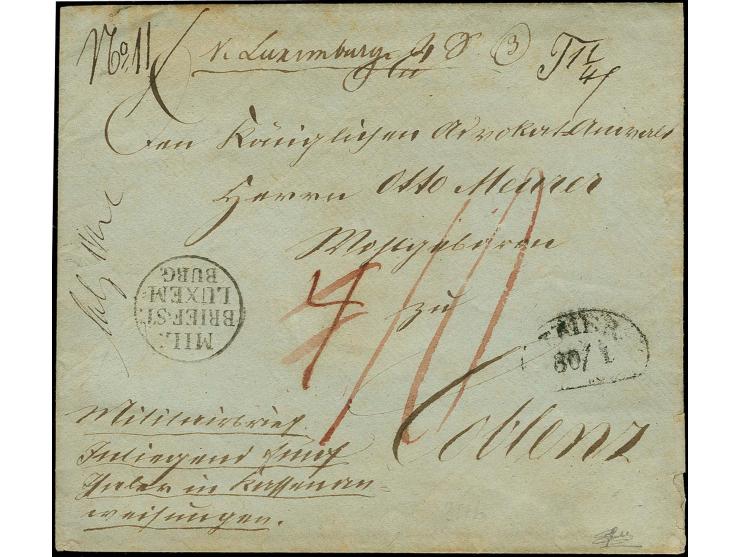 No. 11
v. Luxemburg 4 S. 3
Den Königlichen Advokat-Anwalt
Herrn Otto Meurer
Wohlgeboren
zu
4
10
Coblenz
MIL.
BRIEFST.
LUXEM
BURG.
TRIER
30/1
Militairbrief.
Inliegend fünf
Thaler in Kassenan-
weisungen.